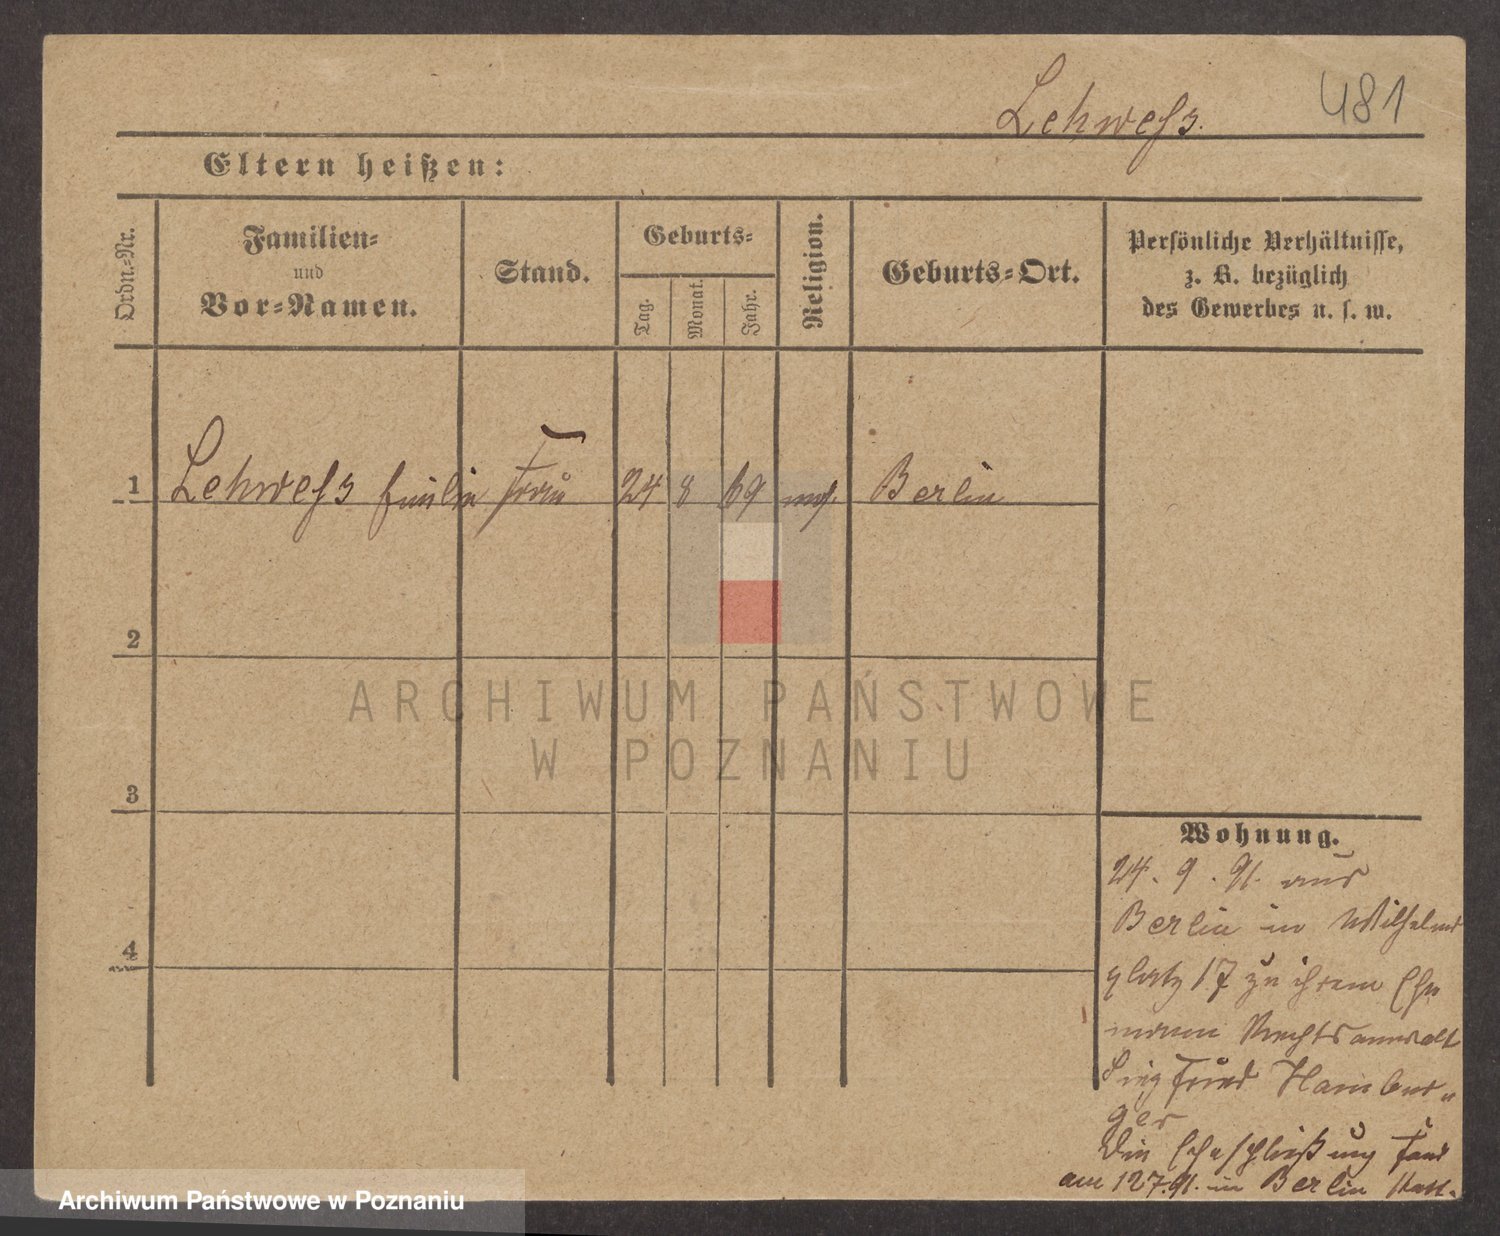 Lehweß.
481
Eltern heißen:
Ordn.-Nr.
Familien-
und
Vor-Namen.
Stand.
Geburts-
Tag.
Monat.
Jahr.
Religion.
Geburts-Ort.
Persönliche Verhältnisse,
z. B. bezüglich
des Gewerbes u. s. w.
1 Lehweß Emilie Frau 24 8 69 mos. Berlin
2
ARCHIWUM PAŃSTWOWE
W POZNANIU
3
Wohnung.
24. 9. 91. aus
Berlin in Wilhelms
platz 17 zu ihrem Ehe
mann Rechtsanwalt
Siegfried Hambur„
ger
4
Die Eheschließung fand
am 12 7. 91. in Berlin statt.
Archiwum Państwowe w Poznaniu